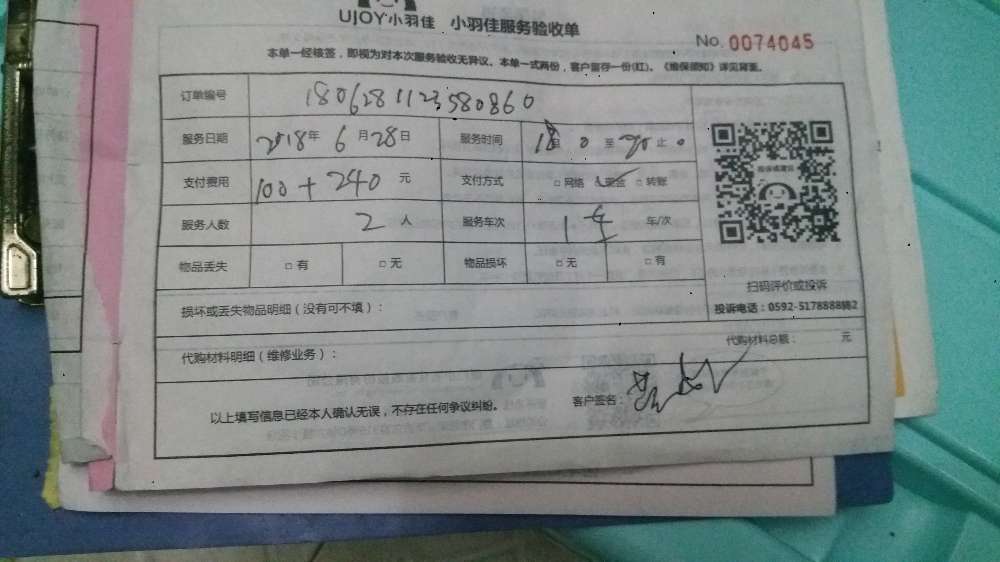 UJOY小羽佳 小羽佳服务验收单
No. 0074045
本单一经核签，即视为对本次服务验收无异议。本单一式两份，客户留存一份(红)。《维保须知》详见背面。
订单编号 1806281123580860
服务日期 2018年 6月28日 服务时间 0 至 20 止 0
支付费用 100+240 元 支付方式 □网络 现金 □转账
服务人数 2 人 服务车次 1 车 车/次
物品丢失 □有 □无 物品损坏 □无 □有
扫码评价或投诉
投诉电话：0592-5178888转2
损坏或丢失物品明细（没有可不填）：
代购材料明细（维修业务）： 代购材料总额： 元
以上填写信息已经本人确认无误，不存在任何争议纠纷。 客户签名：